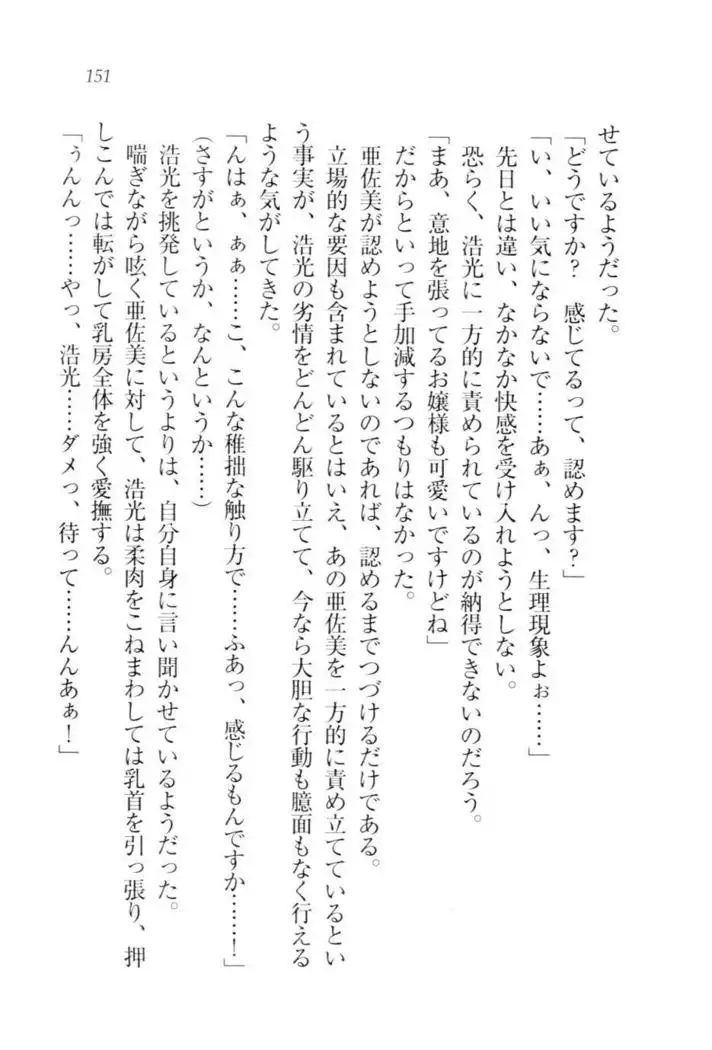 151
せているようだった。
「どうですか？　感じてるって、認めます？」
「い、いい気にならないで……あぁ、んっ、生理現象よぉ……」
先日とは違い、なかなか快感を受け入れようとしない。
恐らく、浩光に一方的に責められているのが納得できないのだろう。
「まあ、意地を張ってるお嬢様も可愛いですけどね」
だからといって手加減するつもりはなかった。
亜佐美が認めようとしないのであれば、認めるまでつづけるだけである。
立場的な要因も含まれているとはいえ、あの亜佐美を一方的に責め立てているとい
う事実が、浩光の劣情をどんどん駆り立てて、今なら大胆な行動も臆面もなく行える
ような気がしてきた。
「んはぁ、ぁぁ……こ、こんな稚拙な触り方で……ふあっ、感じるもんですか……！」
（さすがというか、なんというか……）
浩光を挑発しているというよりは、自分自身に言い聞かせているようだった。
喘ぎながら呟く亜佐美に対して、浩光は柔肉をこねまわしては乳首を引っ張り、押
しこんでは転がして乳房全体を強く愛撫する。
「ぅんんっ……やっ、浩光……ダメっ、待って……んんあぁ！」